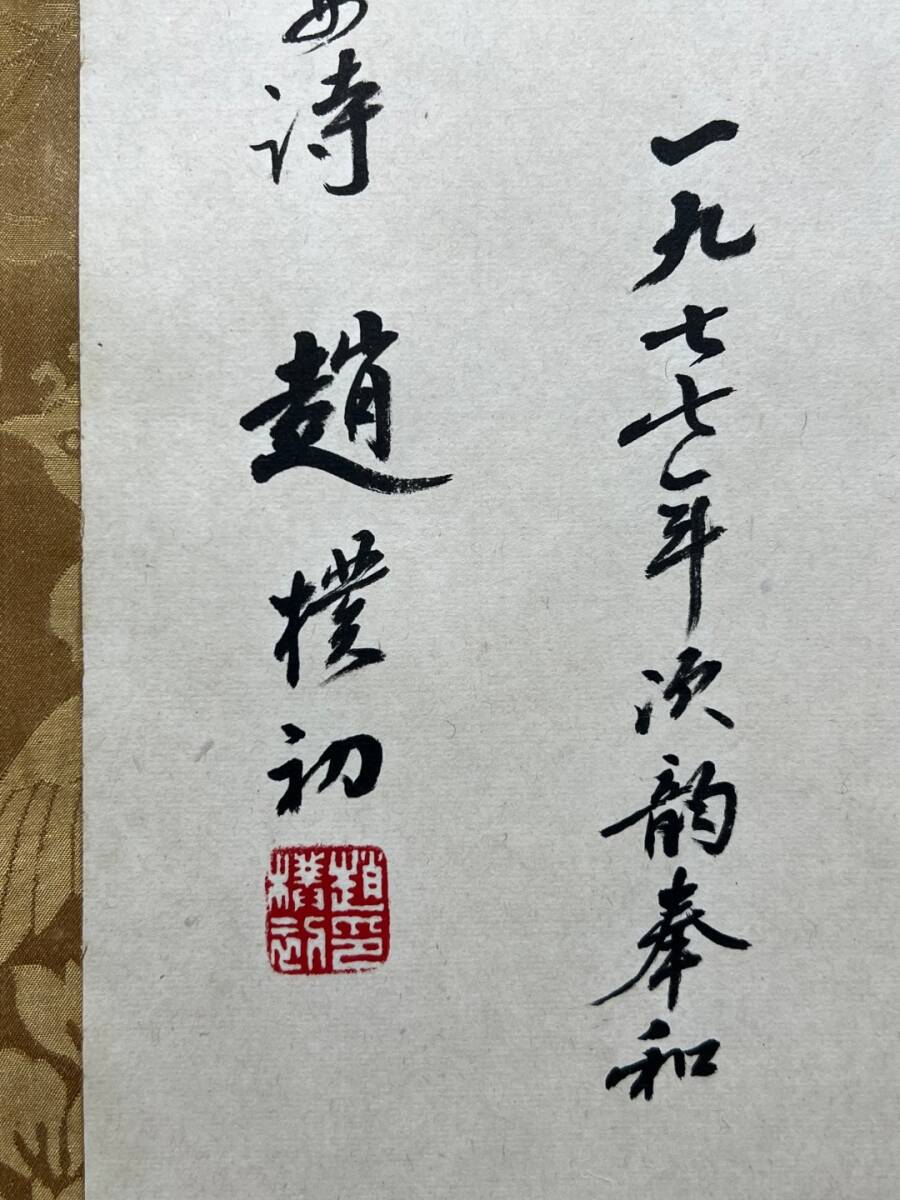 一九七七年次韵奉和
诗 趙樸初
趙樸初印